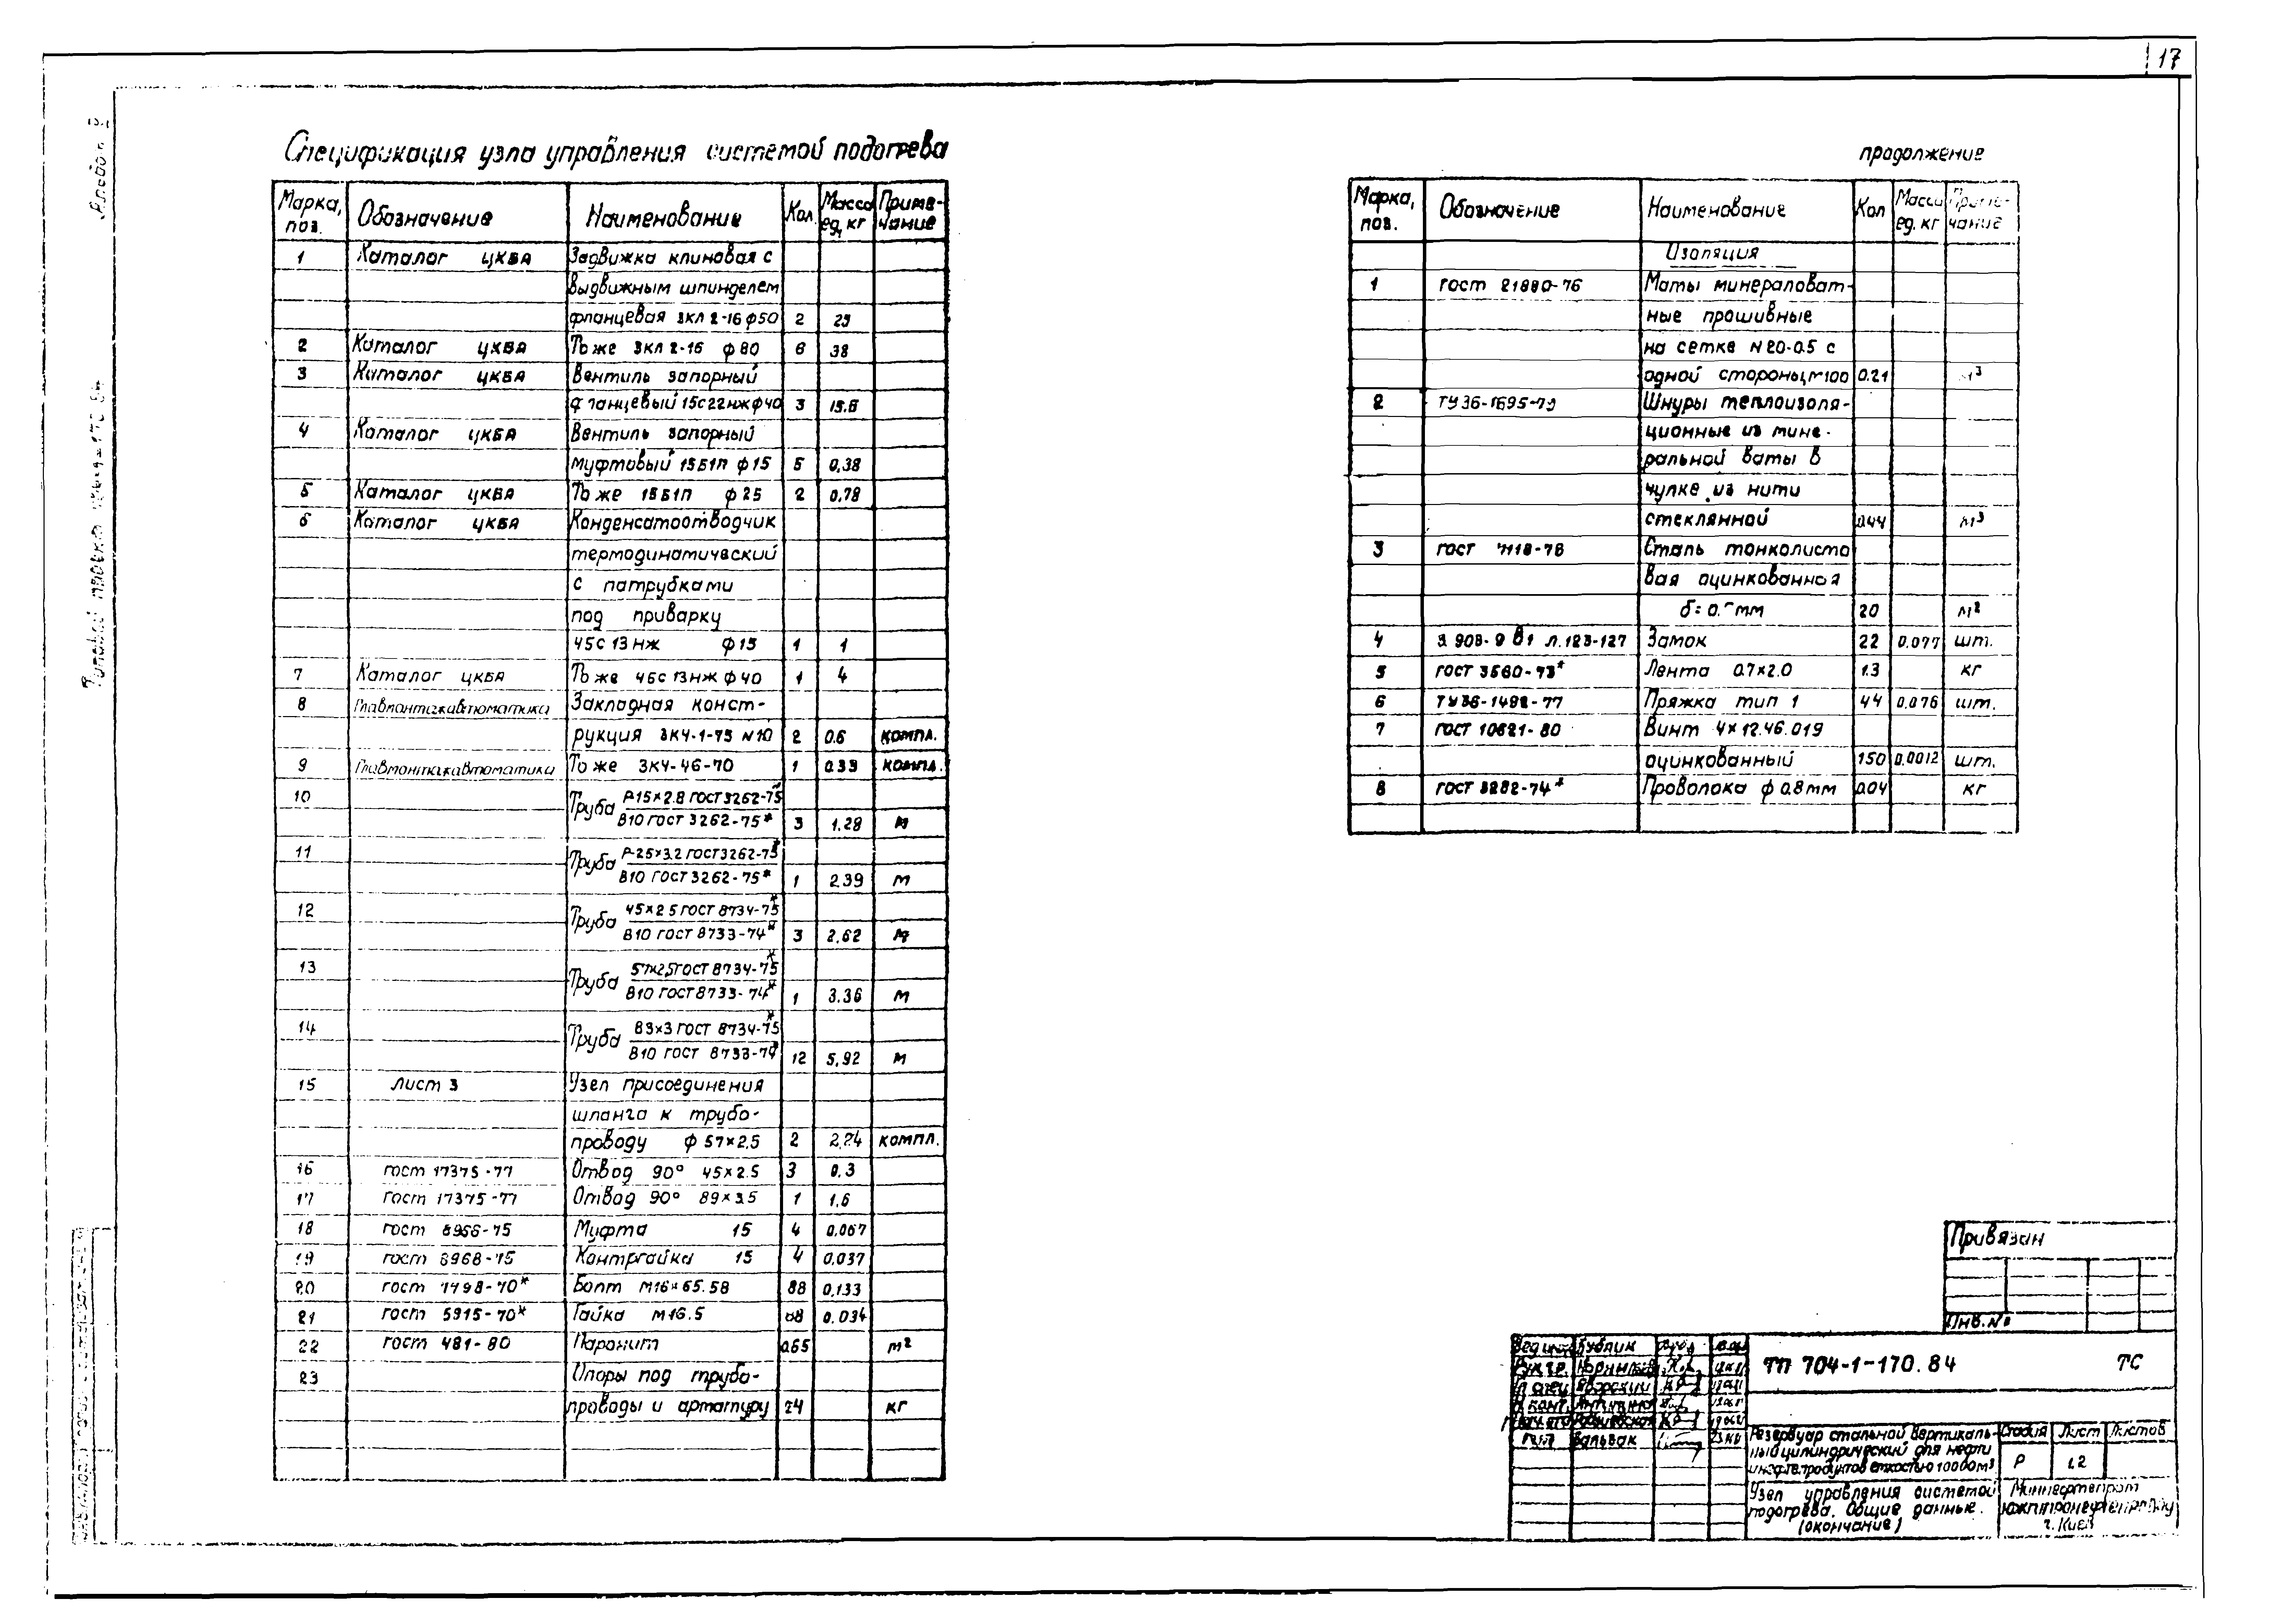 17
Спецификация узла управления системой подогрева
Марка, поз. Обозначение Наименование Кол. Масса ед, кг Приме-чание
1 Каталог ЦКБА Задвижка клиновая с
выдвижным шпинделем
фланцевая 3КЛ2-16 ф50 2 29
2 Каталог ЦКБА То же 3КЛ2-16 ф80 6 38
3 Каталог ЦКБА Вентиль запорный
фланцевый 15с22нж ф40 3 15.6
4 Каталог ЦКБА Вентиль запорный
муфтовый 15Б1п ф15 5 0,38
5 Каталог ЦКБА То же 15Б1п ф25 2 0,78
6 Каталог ЦКБА Конденсатоотводчик
термодинамический
с патрубками
под приварку
45с13нж ф15 1 1
7 Каталог ЦКБА То же 45с13нж ф40 1 4
8 Главмонтажавтоматика Закладная конст-
рукция 3К4-1-75 N10 2 0.6 компл.
9 Главмонтажавтоматика То же 3К4-46-70 1 0.39 компл.
10 Труба Р-15×2.8 ГОСТ 3262-75*
В10 ГОСТ 3262-75* 3 1.28 м
11 Труба Р-25×3.2 ГОСТ 3262-75*
В10 ГОСТ 3262-75* 1 2.39 м
12 Труба 45×2.5 ГОСТ 8734-75*
В10 ГОСТ 8733-74* 3 2.62 м
13 Труба 57×2,5 ГОСТ 8734-75*
В10 ГОСТ 8733-74* 1 3.36 м
14 Труба 83×3 ГОСТ 8734-75*
В10 ГОСТ 8733-74* 12 5,92 м
15 Лист 3 Узел присоединения
шланга к трубо-
проводу ф57×2,5 2 2,24 компл.
16 ГОСТ 17375-77 Отвод 90° 45×2.5 3 0.3
17 ГОСТ 17375-77 Отвод 90° 89×3.5 1 1,6
18 ГОСТ 8966-75 Муфта 15 4 0.067
19 ГОСТ 8968-75 Контргайка 15 4 0.037
20 ГОСТ 7798-70* Болт М16×65.58 88 0,133
21 ГОСТ 5915-70* Гайка М16.5 88 0.034
22 ГОСТ 481-80 Паронит 0.65 м²
23 Опоры под трубо-
проводы и арматуру 24 кг
продолжение
Марка, поз. Обозначение Наименование Кол Масса ед. кг Приме-чание
Изоляция
1 ГОСТ 21880-76 Маты минераловат-
ные прошивные
на сетке N20-0.5 с
одной стороны, М100 0.21 м³
2 ТУ 36-1695-79 Шнуры теплоизоля-
ционные из мине-
ральной ваты в
чулке из нити
стеклянной 0.44 м³
3 ГОСТ 7118-78 Сталь тонколисто
вая оцинкованная
мм 20 м²
4 3.903-9 в1 л.123-127 Замок 22 0.077 шт.
5 ГОСТ 3560-73* Лента 0.7×2.0 1.3 кг
6 ТУ 36-1492-77 Пряжка тип 1 44 0.076 шт.
7 ГОСТ 10621-80 Винт 4×12.46.019
оцинкованный 150 0.0012 шт.
8 ГОСТ 3282-74* Проволока ф0.8мм 0.04 кг
Привязан
Инв.№
ТП 704-1-170.84 ТС
Резервуар стальной вертикаль-
ный цилиндрический для нефти
и нефтепродуктов емкостью 10000м³
Стадия Лист Листов
Р 1.2
Узел управления системой
подогрева. Общие данные.
(окончание)
Миннефтепром
Южгипронефтепровод
г. Киев
Бублик
ГИП
Альбом
Типовой проект 704-1-170.84